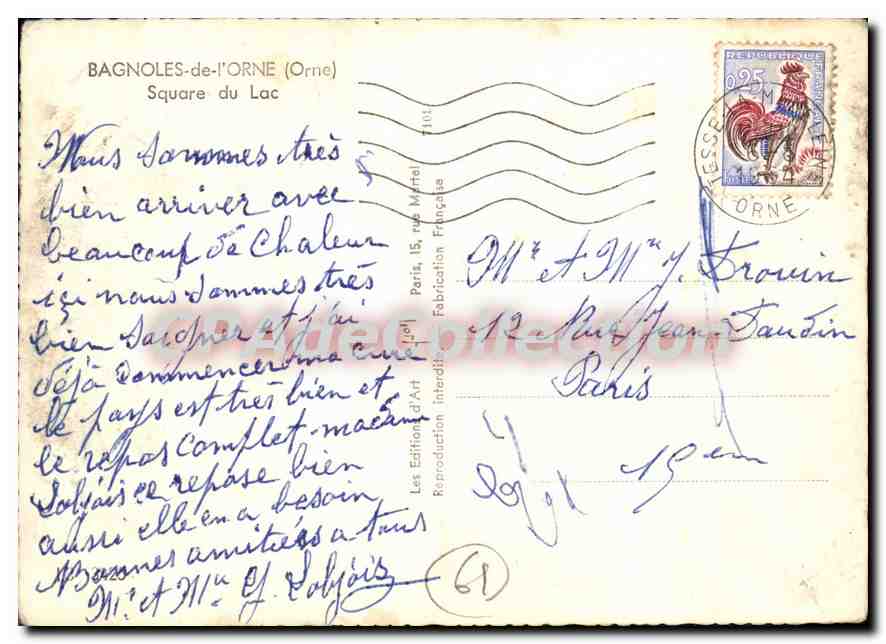 BAGNOLES-de-l'ORNE (Orne)
Square du Lac
Nous sommes très
bien arriver avec
beaucoup de Chaleur
içi nous sommes très
bien soigner et j'ai
déjà commencer ma cure
le pays est très bien et
le repos complet madame
Lobjois ce repose bien
aussi elle en a besoin
Bonnes amitiées a tous
Mr et Mme G. Lobjois
Les Editions d'Art "Jo
Paris, 15, rue Martel
7101
Reproduction interdite
Fabrication Française
REPUBLIQUE FRANÇAISE
0,25
ORNE
Mr et Mme J. Drouin
12 Rue Jean Daudin
Paris
15em
61
CPADeCollection